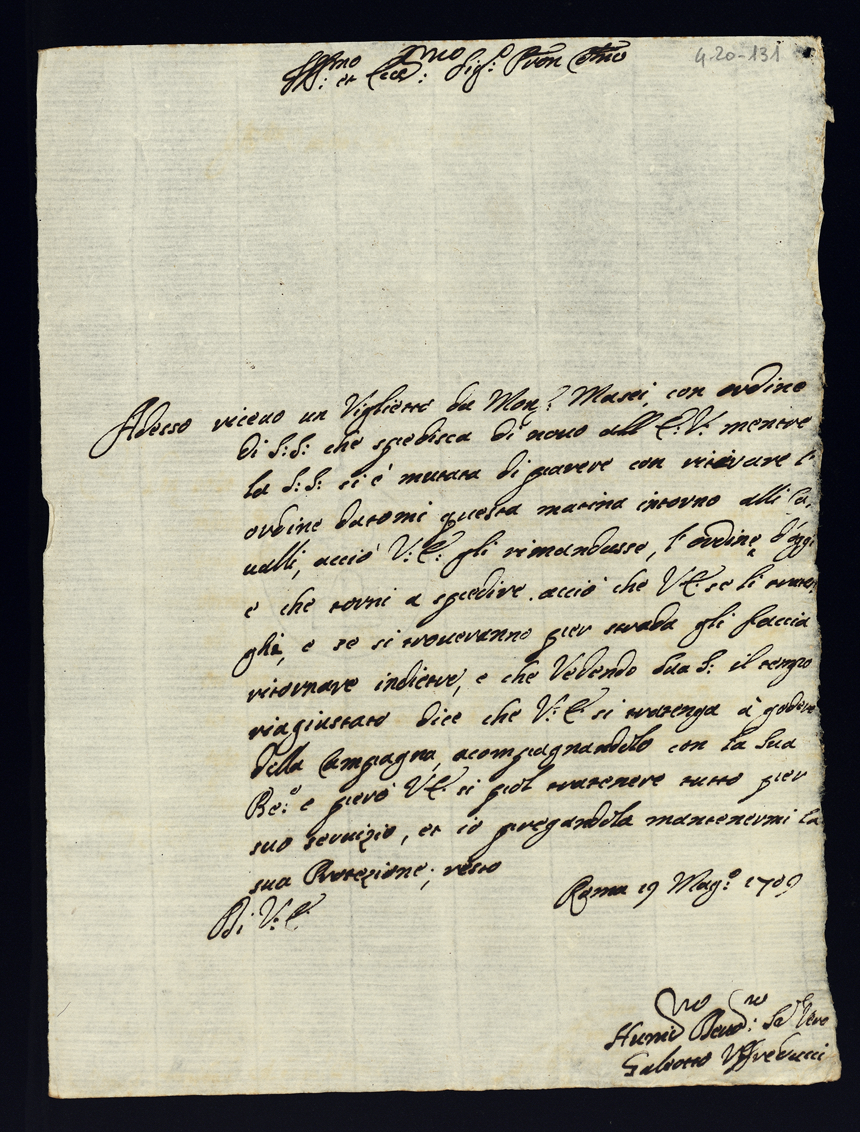 Ill:mo et Ecc:mo Sig:e Pron Col:mo
4-20-131
Adesso ricevo un Viglietto da Mon:r Masei, con ordine
di S: S: che spedisca di novo all E: V: mentre
la S: S: si é mutata di parere con ritirare l'
ordine datomi questa matina intorno alli Ca,
valli, acciò V: E: gli rimandasse, l'ordine d'oggi
e che torni a spedire acciò che V E se li tratten,
ghi, e se si troveranno per strada gli faccia
ritornare indietro, e che Vedendo Sua S: il tempo
riagiustato dice che V: E: si tratenga à godere
della Campagna, acompagnandolo con la Sua
Be:e e però V E: si pol tratenere tutto per
suo servizio, et io pregandola mantenermi la
sua Protezione, resto
Roma 19 Mag:o 1709
Di V: E:
Humil:mo Devot:mo Ser:re Vero
Galeotto Uffreducci